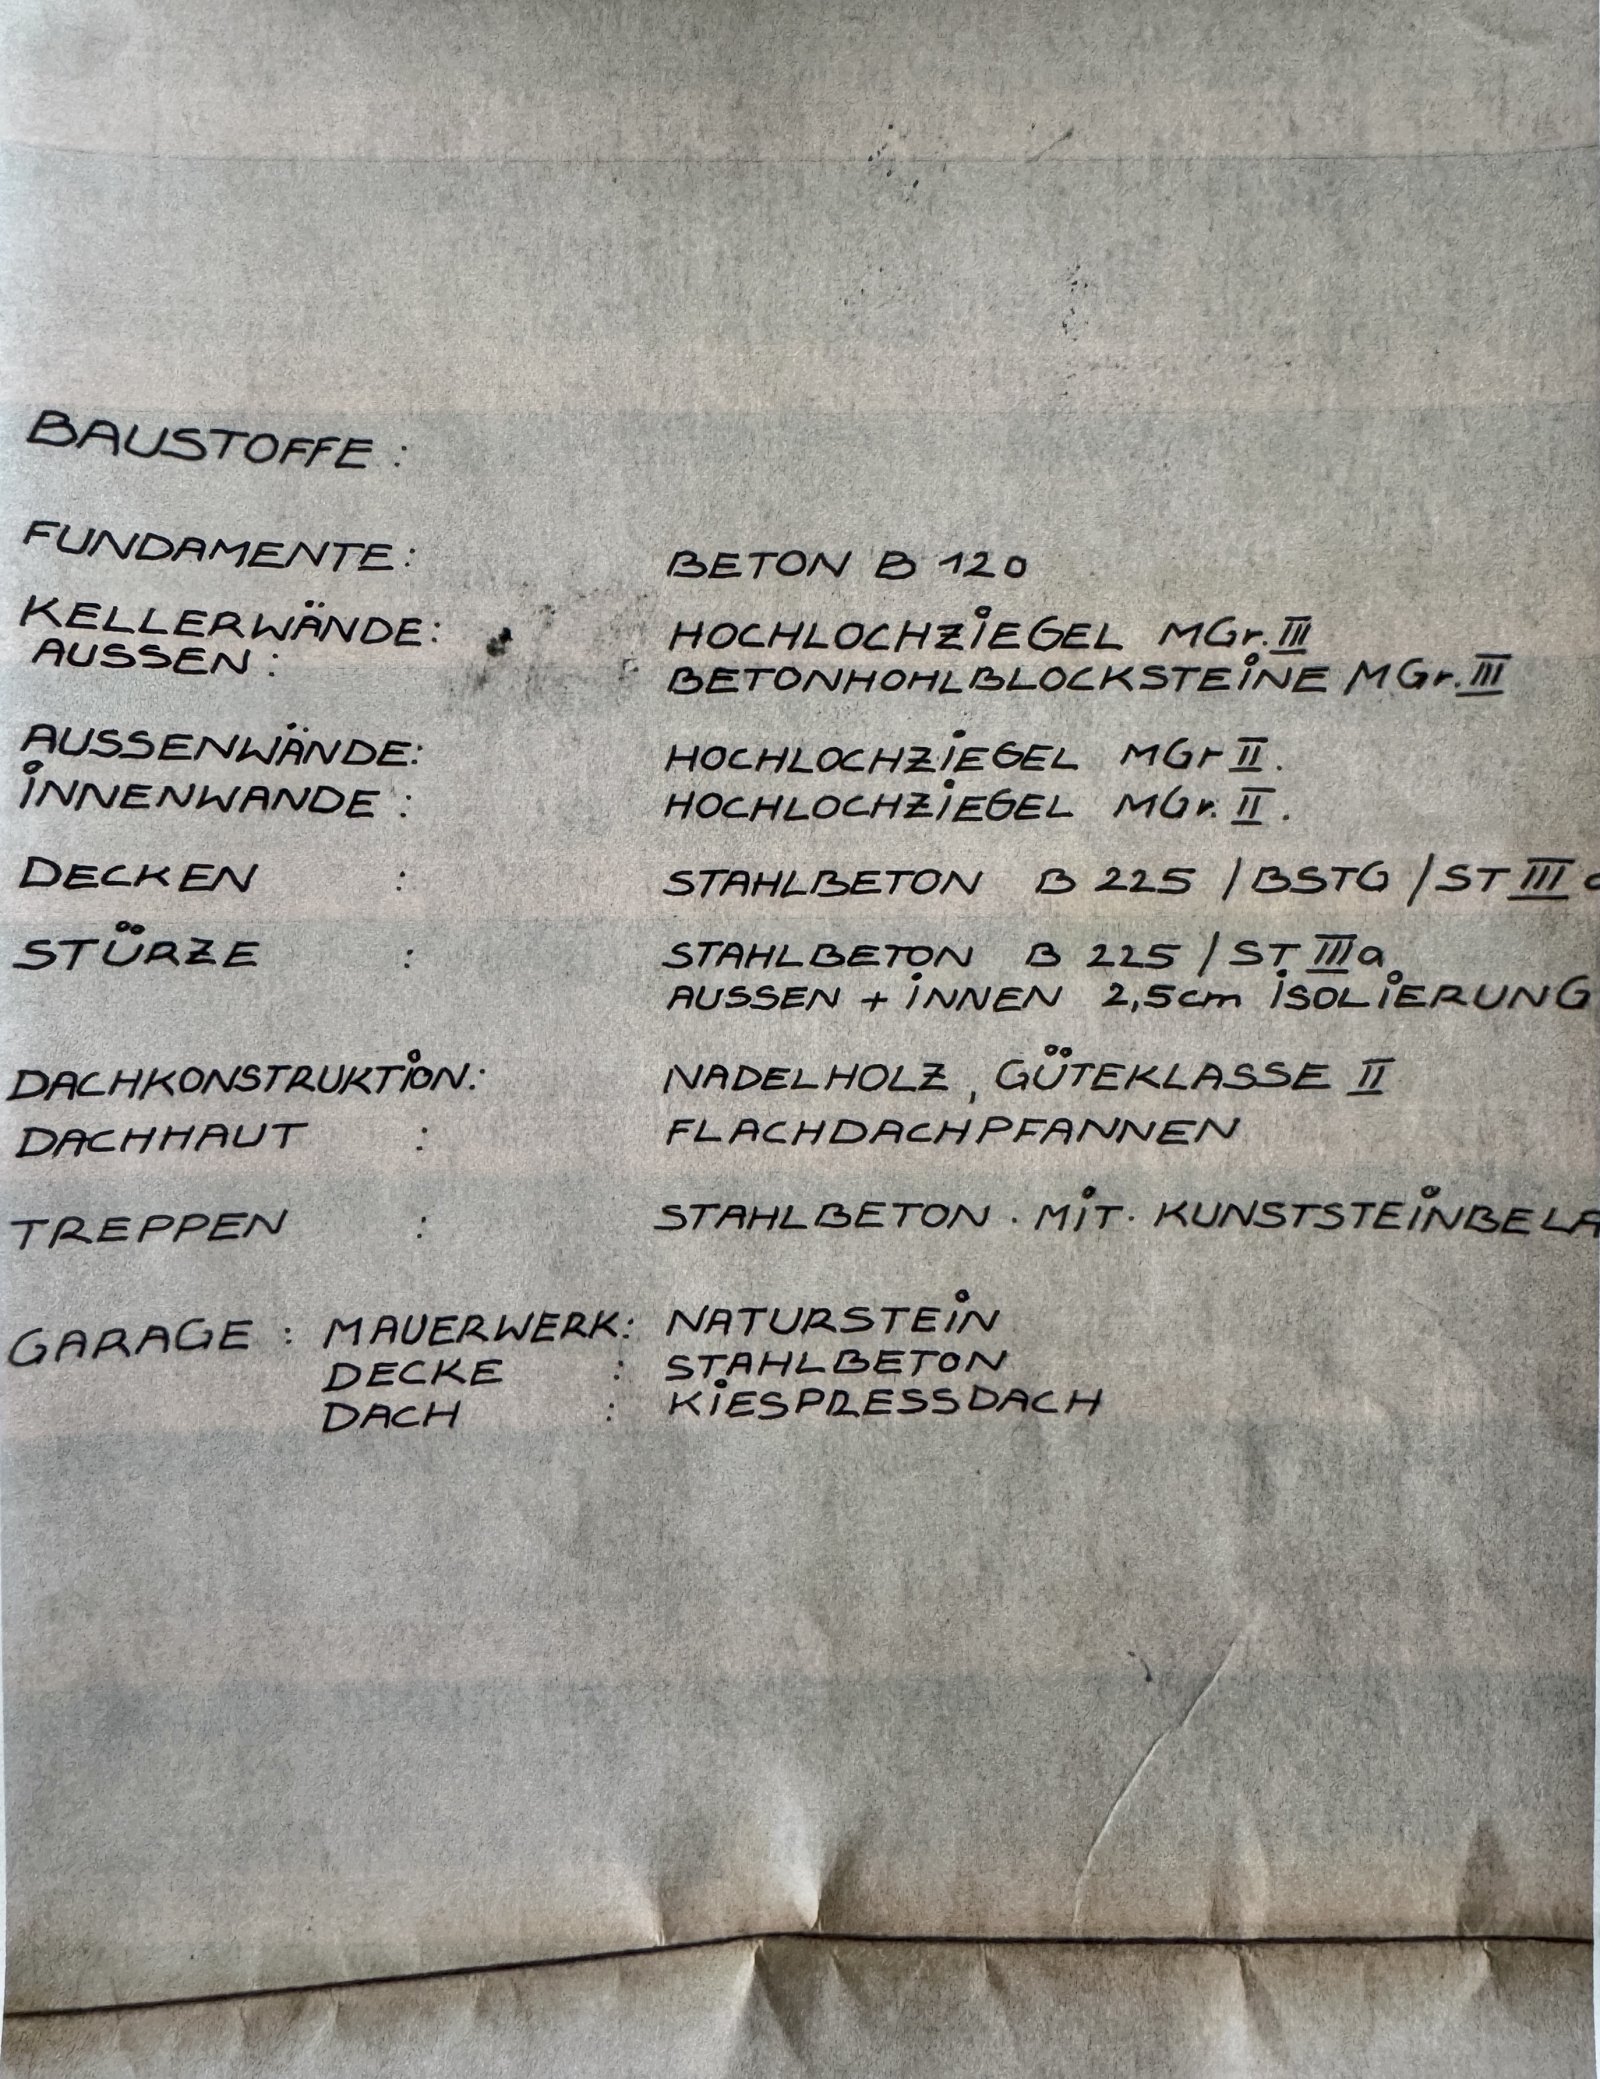 BAUSTOFFE :
FUNDAMENTE: BETON B 120
KELLERWÄNDE: HOCHLOCHZIEGEL MGr. III
AUSSEN: BETONHOHLBLOCKSTEINE MGr. III
AUSSENWÄNDE: HOCHLOCHZIEGEL MGr II.
INNENWANDE : HOCHLOCHZIEGEL MGr. II.
DECKEN : STAHLBETON B 225 / BSTG / ST III
STÜRZE : STAHLBETON B 225 / ST IIIa
AUSSEN + INNEN 2,5cm ISOLIERUNG
DACHKONSTRUKTION: NADELHOLZ, GÜTEKLASSE II
DACHHAUT : FLACHDACHPFANNEN
TREPPEN : STAHLBETON · MIT · KUNSTSTEINBELA
GARAGE : MAUERWERK: NATURSTEIN
DECKE : STAHLBETON
DACH : KIESPRESSDACH